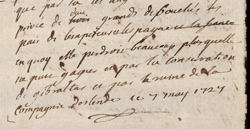 que par la
prince de trois grands de
paix de lespagne et la france
en quoy elle perdroit beaucoup plus quelle
ne peut gagner et par la Conservation
de gibraltar et par la ruine de la
Compagnie dostende ce 7 may 1727